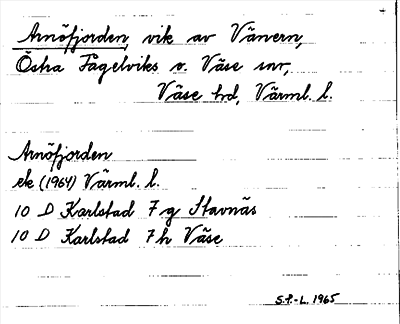 Arnöfjorden, vik av Vänern,
Östra Fågelviks o. Väse snr,
Väse hd, Värml. l.
Arnöfjorden
ek (1964) Värml. l.
10 D Karlstad 7 g Stavnäs
10 D Karlstad 7 h Väse
S.P.-L. 1965